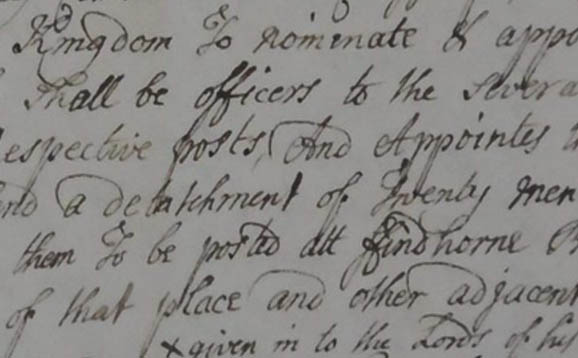 Kingdom To nominate & appo
Shall be officers to the severa
espective posts, And Appointes t
nd a detatchment of Twenty men
them To be posted att ffindhorne
of that place and other adjacent
x given in to the Lords of his